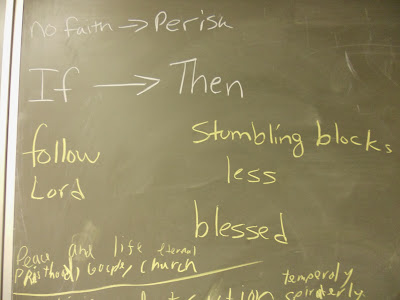 no faith → Perish
If → Then
follow Stumbling blocks
Lord less
blessed
Peace and life eternal
Priesthood, Gospel, Church
temperaly